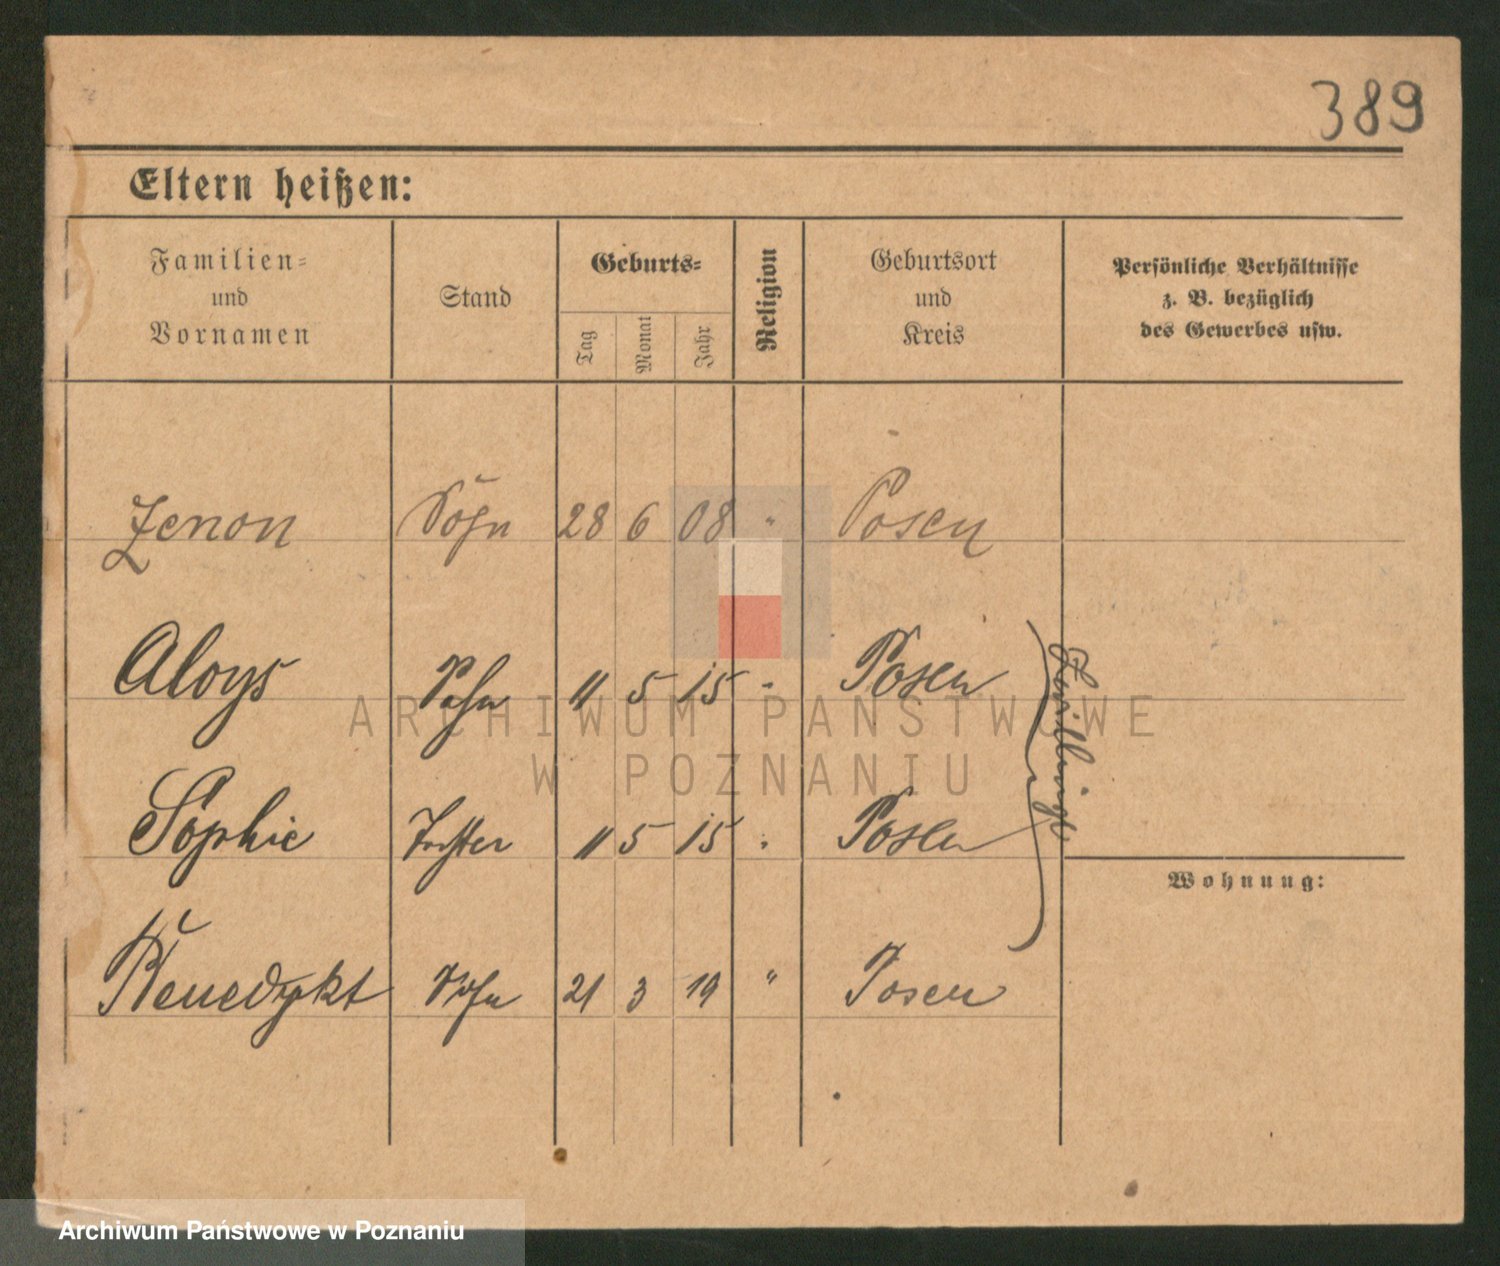 389
Eltern heißen:
Familien=
und
Vornamen
Stand
Geburts=
Tag
Monat
Jahr
Religion
Geburtsort
und
Kreis
Persönliche Verhältnisse
z. B. bezüglich
des Gewerbes usw.
Zenon Sohn 28 6 08 " Posen
Aloys Sohn 11 5 15 " Posen
Zwillinge
Sophie Tochter 11 5 15 " Posen
Wohnung:
Benedykt Sohn 21 3 19 " Posen
ARCHIWUM PAŃSTWOWE
W POZNANIU
Archiwum Państwowe w Poznaniu